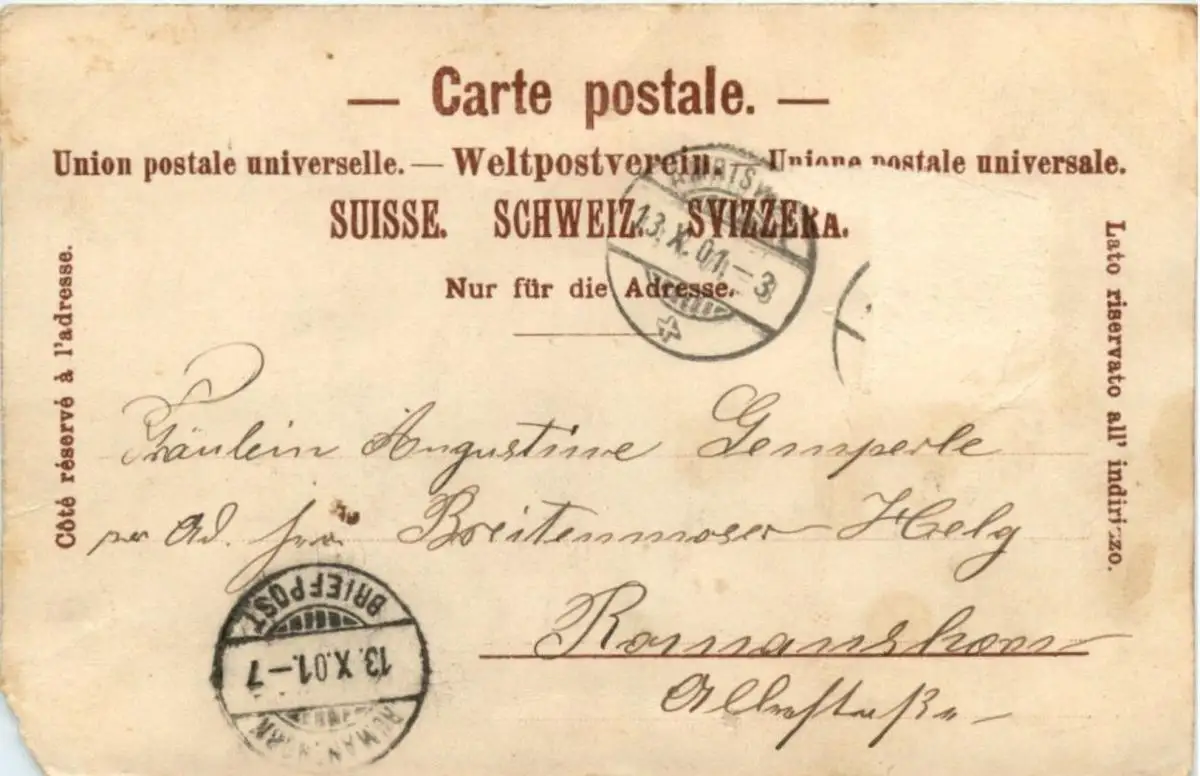 — Carte postale. —
Union postale universelle. — Weltpostverein. — Unione postale universale.
SUISSE. SCHWEIZ. SVIZZERA.
Nur für die Adresse.
Côté réservé à l'adresse.
Lato riservato all' indirizzo.
13.X.01.–3
Fräulein Augustine Gemperle
per Ad. Breitenmoser-Helg
Romanshorn
BRIEFPOST
13.X.01.–7
ROMANSHORN